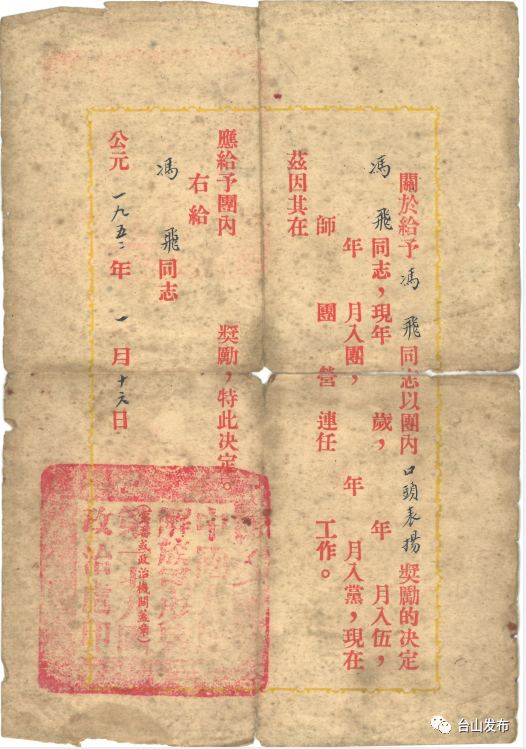 關於給予馮飛同志以團內口頭表揚獎勵的决定
馮飛同志，現年 歲， 年 月入伍，
年 月入團， 年 月入黨，現在
師 團 營 連任 工作。
茲因其在
應給予團內 獎勵，特此决定。
右給
馮飛同志
公元一九五二年一月十六日
(黨委或政治機關蓋章)
政治處印
台山发布